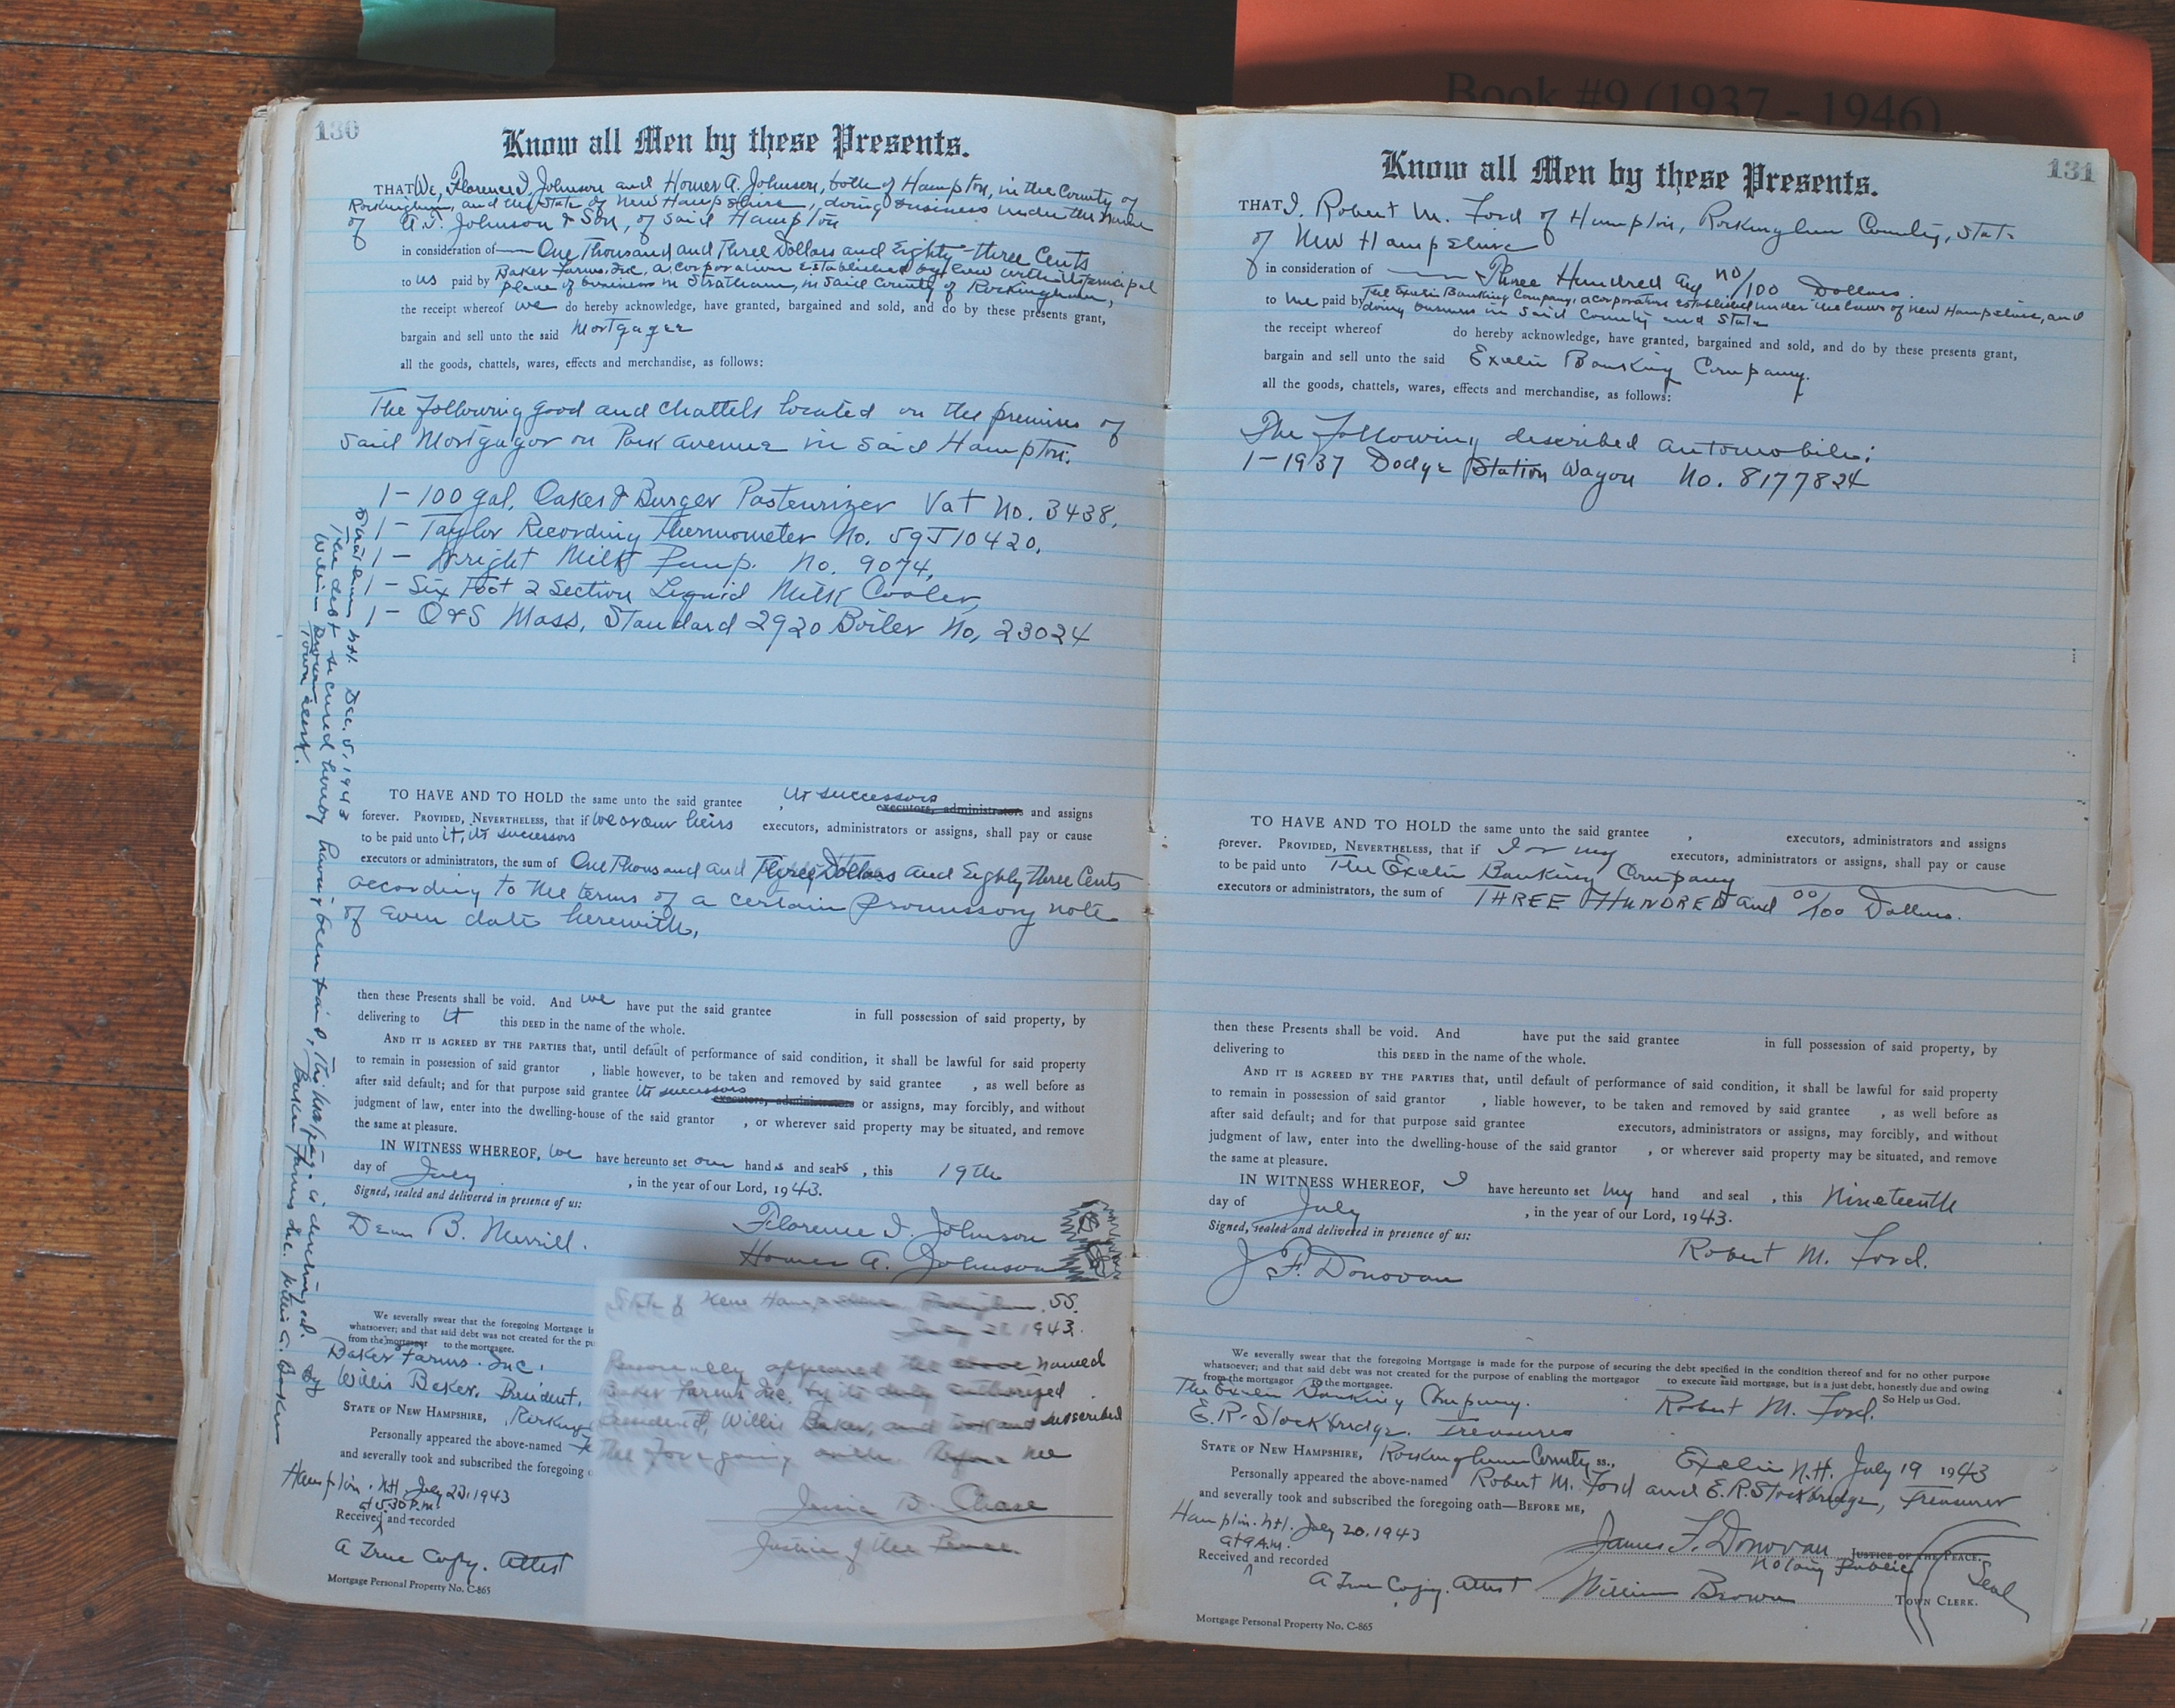 Book #9 (1937 - 1946)
130
Know all Men by these Presents.
THAT We, Florence I. Johnson and Homer A. Johnson, both of Hampton, in the County of
Rockingham, and the State of New Hampshire, doing business under the name
of A. J. Johnson & Son, of said Hampton
in consideration of One Thousand and Three Dollars and Eighty-three Cents
to us paid by Baker Farms, Inc, a corporation established by law with its principal
place of business in Stratham, in said County of Rockingham,
the receipt whereof we do hereby acknowledge, have granted, bargained and sold, and do by these presents grant,
bargain and sell unto the said Mortgagee
all the goods, chattels, wares, effects and merchandise, as follows:
The following good and chattels located on the premises of
said Mortgagor on Park Avenue in said Hampton:
1 - 100 gal. Oakes & Burger Pasteurizer Vat No. 3438,
1 - Taylor Recording Thermometer No. 59J10420,
1 - Wright Milk Pump. No. 9074,
1 - Six Foot 2 Section Liquid Milk Cooler,
1 - O&S Mass. Standard 2920 Boiler No, 23024
TO HAVE AND TO HOLD the same unto the said grantee , its successors executors, administrators and assigns
forever. PROVIDED, NEVERTHELESS, that if we or our heirs executors, administrators or assigns, shall pay or cause
to be paid unto it, its successors
executors or administrators, the sum of One Thousand and Three Dollars and Eighty three Cents
according to the terms of a certain promissory note
of even date herewith,
then these Presents shall be void. And we have put the said grantee in full possession of said property, by
delivering to it this DEED in the name of the whole.
AND IT IS AGREED BY THE PARTIES that, until default of performance of said condition, it shall be lawful for said property
to remain in possession of said grantor , liable however, to be taken and removed by said grantee , as well before as
after said default; and for that purpose said grantee its successors executors, administrators or assigns, may forcibly, and without
judgment of law, enter into the dwelling-house of the said grantor , or wherever said property may be situated, and remove
the same at pleasure.
IN WITNESS WHEREOF, we have hereunto set our hands and seals , this 19th
day of July , in the year of our Lord, 1943.
Signed, sealed and delivered in presence of us:
Dean B. Merrill.
Florence I. Johnson
Homer A. Johnson
We severally swear that the foregoing Mortgage is
whatsoever; and that said debt was not created for the pu
from the mortgagor to the mortgagee.
Baker Farms. Inc.
Willis Baker. President.
STATE OF NEW HAMPSHIRE, Rocking
Personally appeared the above-named
and severally took and subscribed the foregoing
Hampton. N.H. July 22. 1943
at 5.30 P.M.
Received and recorded
A True Copy. Attest
Mortgage Personal Property No. C-865
State of New Hampshire. Rockingham. SS.
1943.
Personally appeared the above named
Baker Farms Inc. by its duly authorized
President, Willis Baker, and took and subscribed
the foregoing oath. Before me
B. Chase
Justice of the Peace.
N.H. Dec. 5, 1943
The debt secured hereby having been paid, this mortgage is discharged.
Baker Farms Inc. By Willis A. Baker
William Brown
Town Clerk.
131
Know all Men by these Presents.
THAT I, Robert M. Ford of Hampton, Rockingham County, State
of New Hampshire
in consideration of Three Hundred and no/100 Dollars.
to me paid by The Exeter Banking Company, a corporation established under the laws of New Hampshire, and
doing business in said County and State
the receipt whereof do hereby acknowledge, have granted, bargained and sold, and do by these presents grant,
bargain and sell unto the said Exeter Banking Company.
all the goods, chattels, wares, effects and merchandise, as follows:
The following described automobile:
1 - 1937 Dodge Station Wagon No. 8177824
TO HAVE AND TO HOLD the same unto the said grantee , executors, administrators and assigns
forever. PROVIDED, NEVERTHELESS, that if I or my executors, administrators or assigns, shall pay or cause
to be paid unto The Exeter Banking Company
executors or administrators, the sum of THREE HUNDRED and 00/100 Dollars.
then these Presents shall be void. And have put the said grantee in full possession of said property, by
delivering to this DEED in the name of the whole.
AND IT IS AGREED BY THE PARTIES that, until default of performance of said condition, it shall be lawful for said property
to remain in possession of said grantor , liable however, to be taken and removed by said grantee , as well before as
after said default; and for that purpose said grantee executors, administrators or assigns, may forcibly, and without
judgment of law, enter into the dwelling-house of the said grantor , or wherever said property may be situated, and remove
the same at pleasure.
IN WITNESS WHEREOF, I have hereunto set my hand and seal , this Nineteenth
day of July , in the year of our Lord, 1943.
Signed, sealed and delivered in presence of us:
J. F. Donovan
Robert M. Ford.
We severally swear that the foregoing Mortgage is made for the purpose of securing the debt specified in the condition thereof and for no other purpose
whatsoever; and that said debt was not created for the purpose of enabling the mortgagor to execute said mortgage, but is a just debt, honestly due and owing
from the mortgagor to the mortgagee. So Help us God.
The Exeter Banking Company.
Robert M. Ford.
E. R. Stockbridge. Treasurer
STATE OF NEW HAMPSHIRE, Rockingham County ss., Exeter N.H. July 19 1943
Personally appeared the above-named Robert M. Ford and E.R. Stockbridge, Treasurer
and severally took and subscribed the foregoing oath—BEFORE ME,
Hampton. N.H. July 20. 1943
at 9 A.M.
James F. Donovan JUSTICE OF THE PEACE.
Notary Public
Seal
Received and recorded
A True Copy. Attest William Brown TOWN CLERK.
Mortgage Personal Property No. C-865